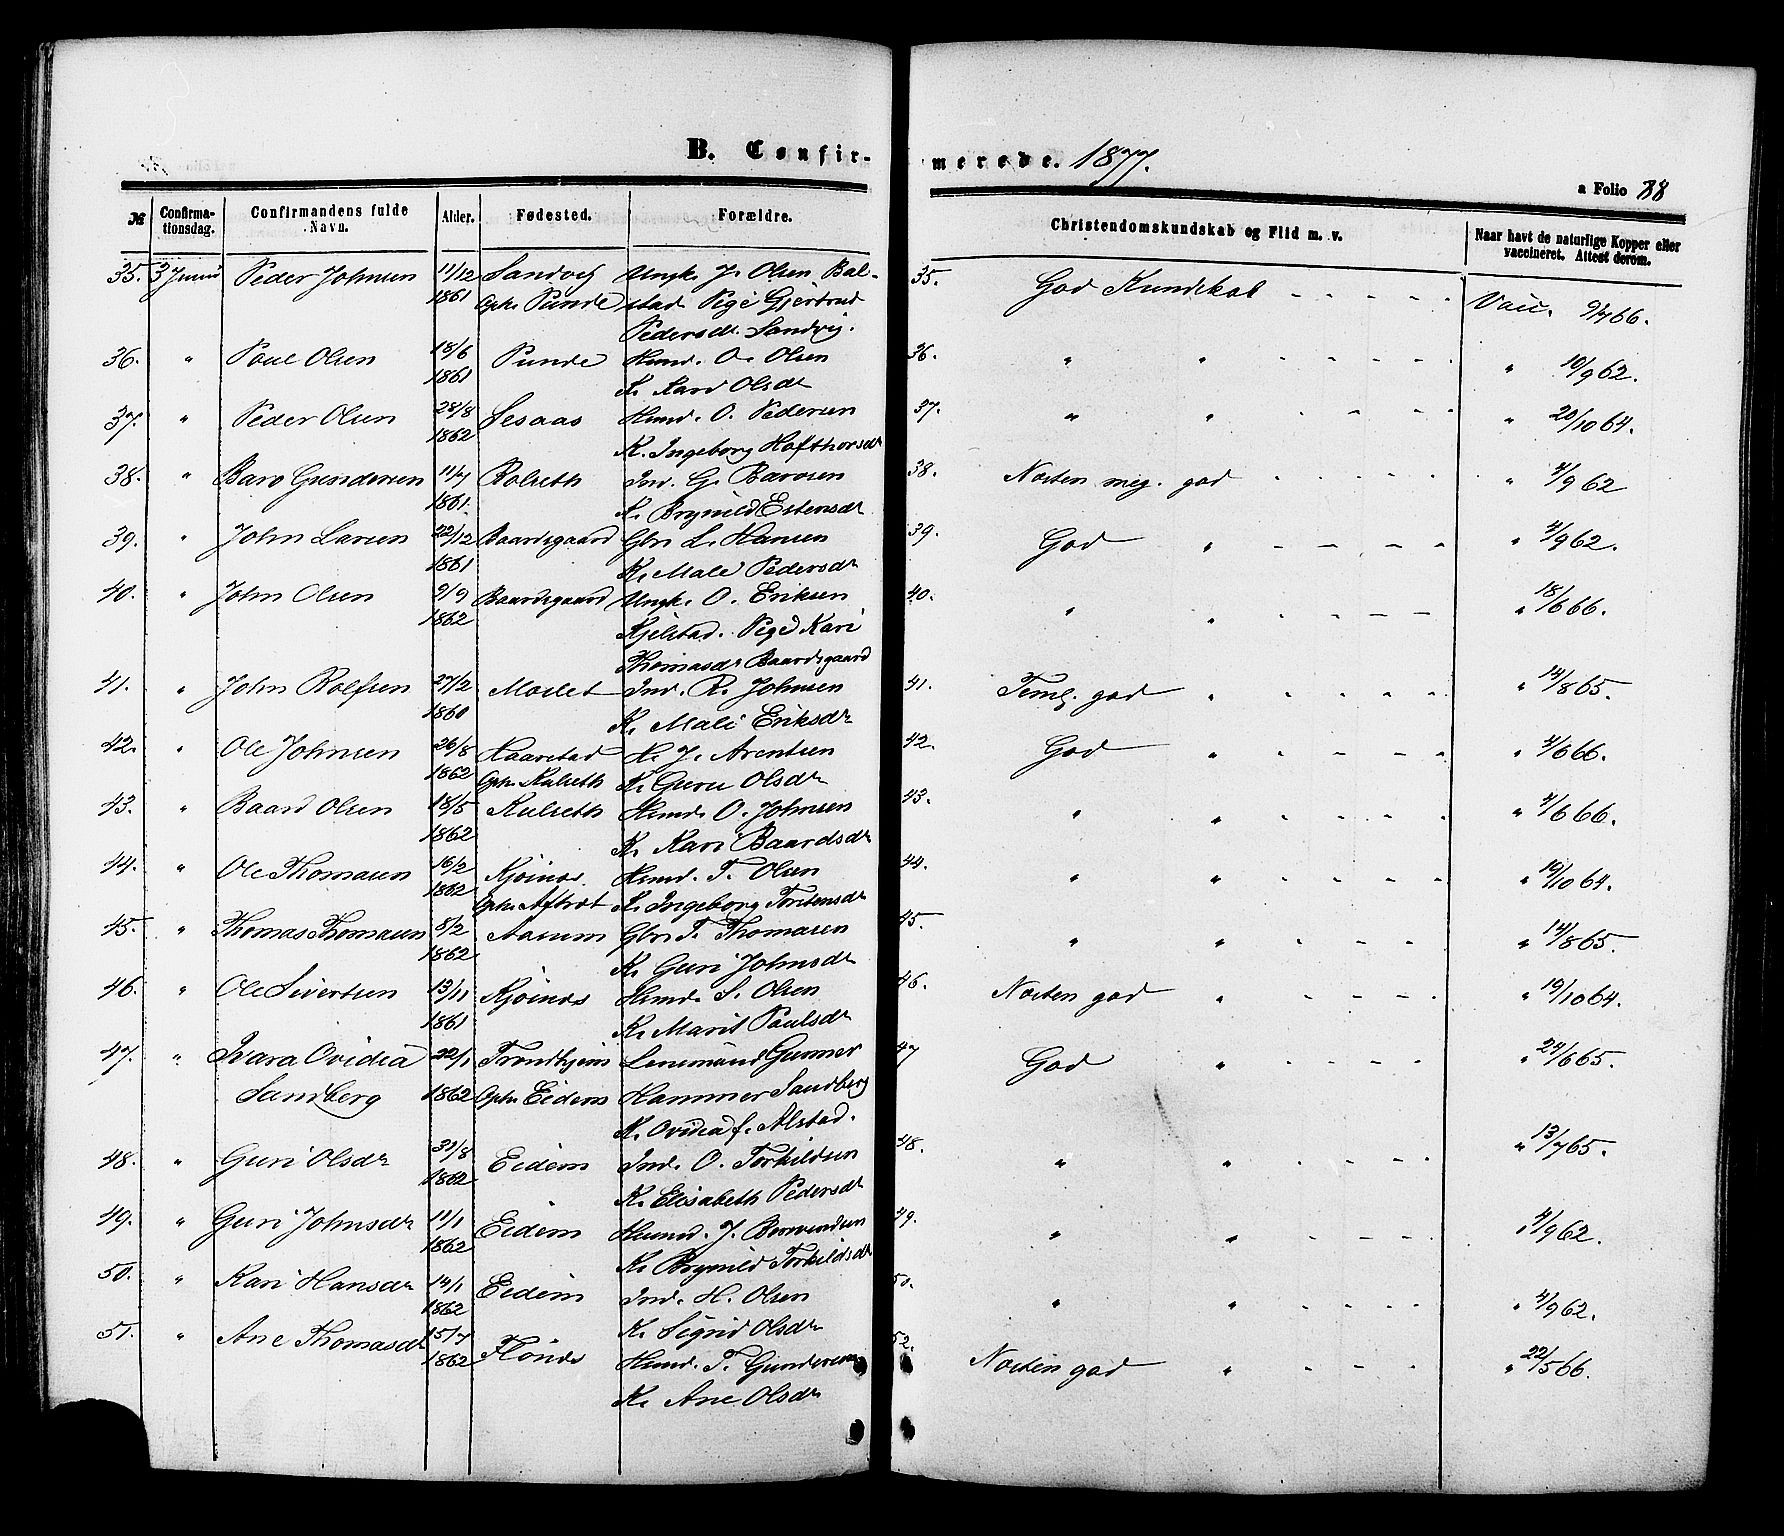 B. Confirmerede. 1877.
a Folio 88
№ Confirmationsdag. Confirmandens fulde Navn. Alder. Fødested. Forældre. Christendomskundskab og Flid m. v. Naar havt de naturlige Kopper eller vaccineret. Attest derom.
35. 3 Juni Peder Johnsen 11/12 Sandvig Ungk. J. Olsen Bal- 35. God Kundskab - - - - - Vacc. 9/7 66.
1861 Oph. Punde stad Pige Gjertrud
Pedersdr Sandvig.
36. " Paul Olsen 18/6 Punde Huusmd. O. Olsen 36. " " - - - - " 10/9 62.
1861 K. Kari Olsdr
37. " Peder Olsen 28/8 Sesaas Huusmd. O. Pedersen 37. " " - - - - " 20/10 64.
1862 K. Ingeborg Hafthorsdr
38. " Baro Gundersen 11/7 Rolseth Ind. G. Barosen 38. Næsten meg. god - - - - - " 4/9 62
1861. K. Brynild Estensdr
39. " John Larsen 22/12 Baardsgaard Gbr L. Hansen 39. God " - - - - " 4/9 62.
1861 K. Male Pedersdr
40. " John Olsen 9/9 Baardsgaard Ungk. O. Eriksen 40. " " - - - - " 18/6 66.
1862 Kjelstad. Pige Kari
Thomasdr Baardsgaard
41. " John Rolfsen 27/2 Moslet Ind. R. Johnsen 41. Teml. god " - - - - " 14/8 65.
1860 K. Mali Eriksdr
42. " Ole Johnsen 26/8 Haarstad H. J. Arentsen 42. God " - - - - " 4/6 66.
1862 Oph. Kulseth K. Guru Olsdr
43. " Baard Olsen 18/5 Kulseth Huusmd. O. Johnsen 43. " " - - - - " 4/6 66.
1862 K. Kari Baardsdr
44. " Ole Thomasen 16/2 Kjøinos Huusmd. T. Olsen 44. " " - - - - " 19/10 64.
1862 Oph. Aftret K. Ingeborg Torstensdr
45. " Thomas Thomasen 8/2 Aasum Gbr T. Thomasen 45. " " - - - - " 14/8 65.
1862 K. Guri Johnsdr
46. " Ole Sivertsen 13/11 Kjøinos Huusmd. S. Olsen 46. Næsten god " - - - - " 19/10 64.
1861 K. Marit Paulsdr
47. " Ivara Ovidea 22/1 Trondhjem Lensmand Gunner 47 God " - - - - " 24/6 65.
Sandberg 1862 Oph. Eidem Hammer Sandberg
K. Ovidea f. Alstad.
48. " Guri Olsdr 31/8 Eidem Ind. O. Torkildsen 48. " " - - - - " 13/7 65.
1862 K. Elisabeth Pedersdr
49. " Guri Johnsdr 11/1 Eidem Huusmd. J. 49. " " - - - - " 4/9 62.
1862 K. Brynild Torkildsdr
50. " Kari Hansdr 14/1 Eidem Ind. H. Olsen 50. " " - - - - " 4/9 62.
1862 K. Sigrid Olsdr
51. " Ane Thomasdr 15/7 Flønes Huusmd. T. Gundersen 52. Næsten god " - - - - " 22/5 66.
1862 K. Ane Olsdr